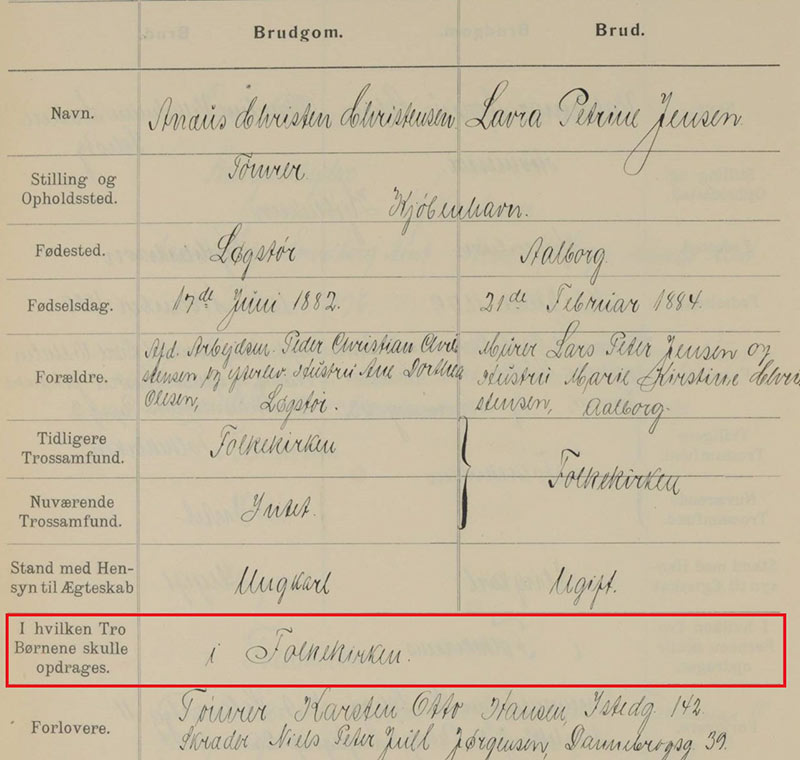 Brudgom. Brud.
Navn. Anæus Christen Christensen. Lavra Petrine Jensen.
Stilling og Opholdssted. Tömrer
Kjöbenhavn.
Fødested. Løgstör Aalborg.
Fødselsdag. 17de Juni 1882. 21de Februar 1884.
Forældre. Afd. Arbejdsm. Peder Christian Chri= Murer Lars Peter Jensen og
stensen og efterlev. Hustru Ane Dorthea Hustru Marie Kirstine Chri
Olesen, Løgstør. stensen, Aalborg.
Tidligere Trossamfund. Folkekirken
Folkekirken
Nuværende Trossamfund. Intet.
Stand med Hen-
syn til Ægteskab Ungkarl Ugift.
I hvilken Tro
Børnene skulle i Folkekirken.
opdrages.
Forlovere. Tömrer Karsten Otto Hansen, Istedg. 142.
Skrædder Niels Peter Juill Jørgensen, Dannebrogsg. 39.